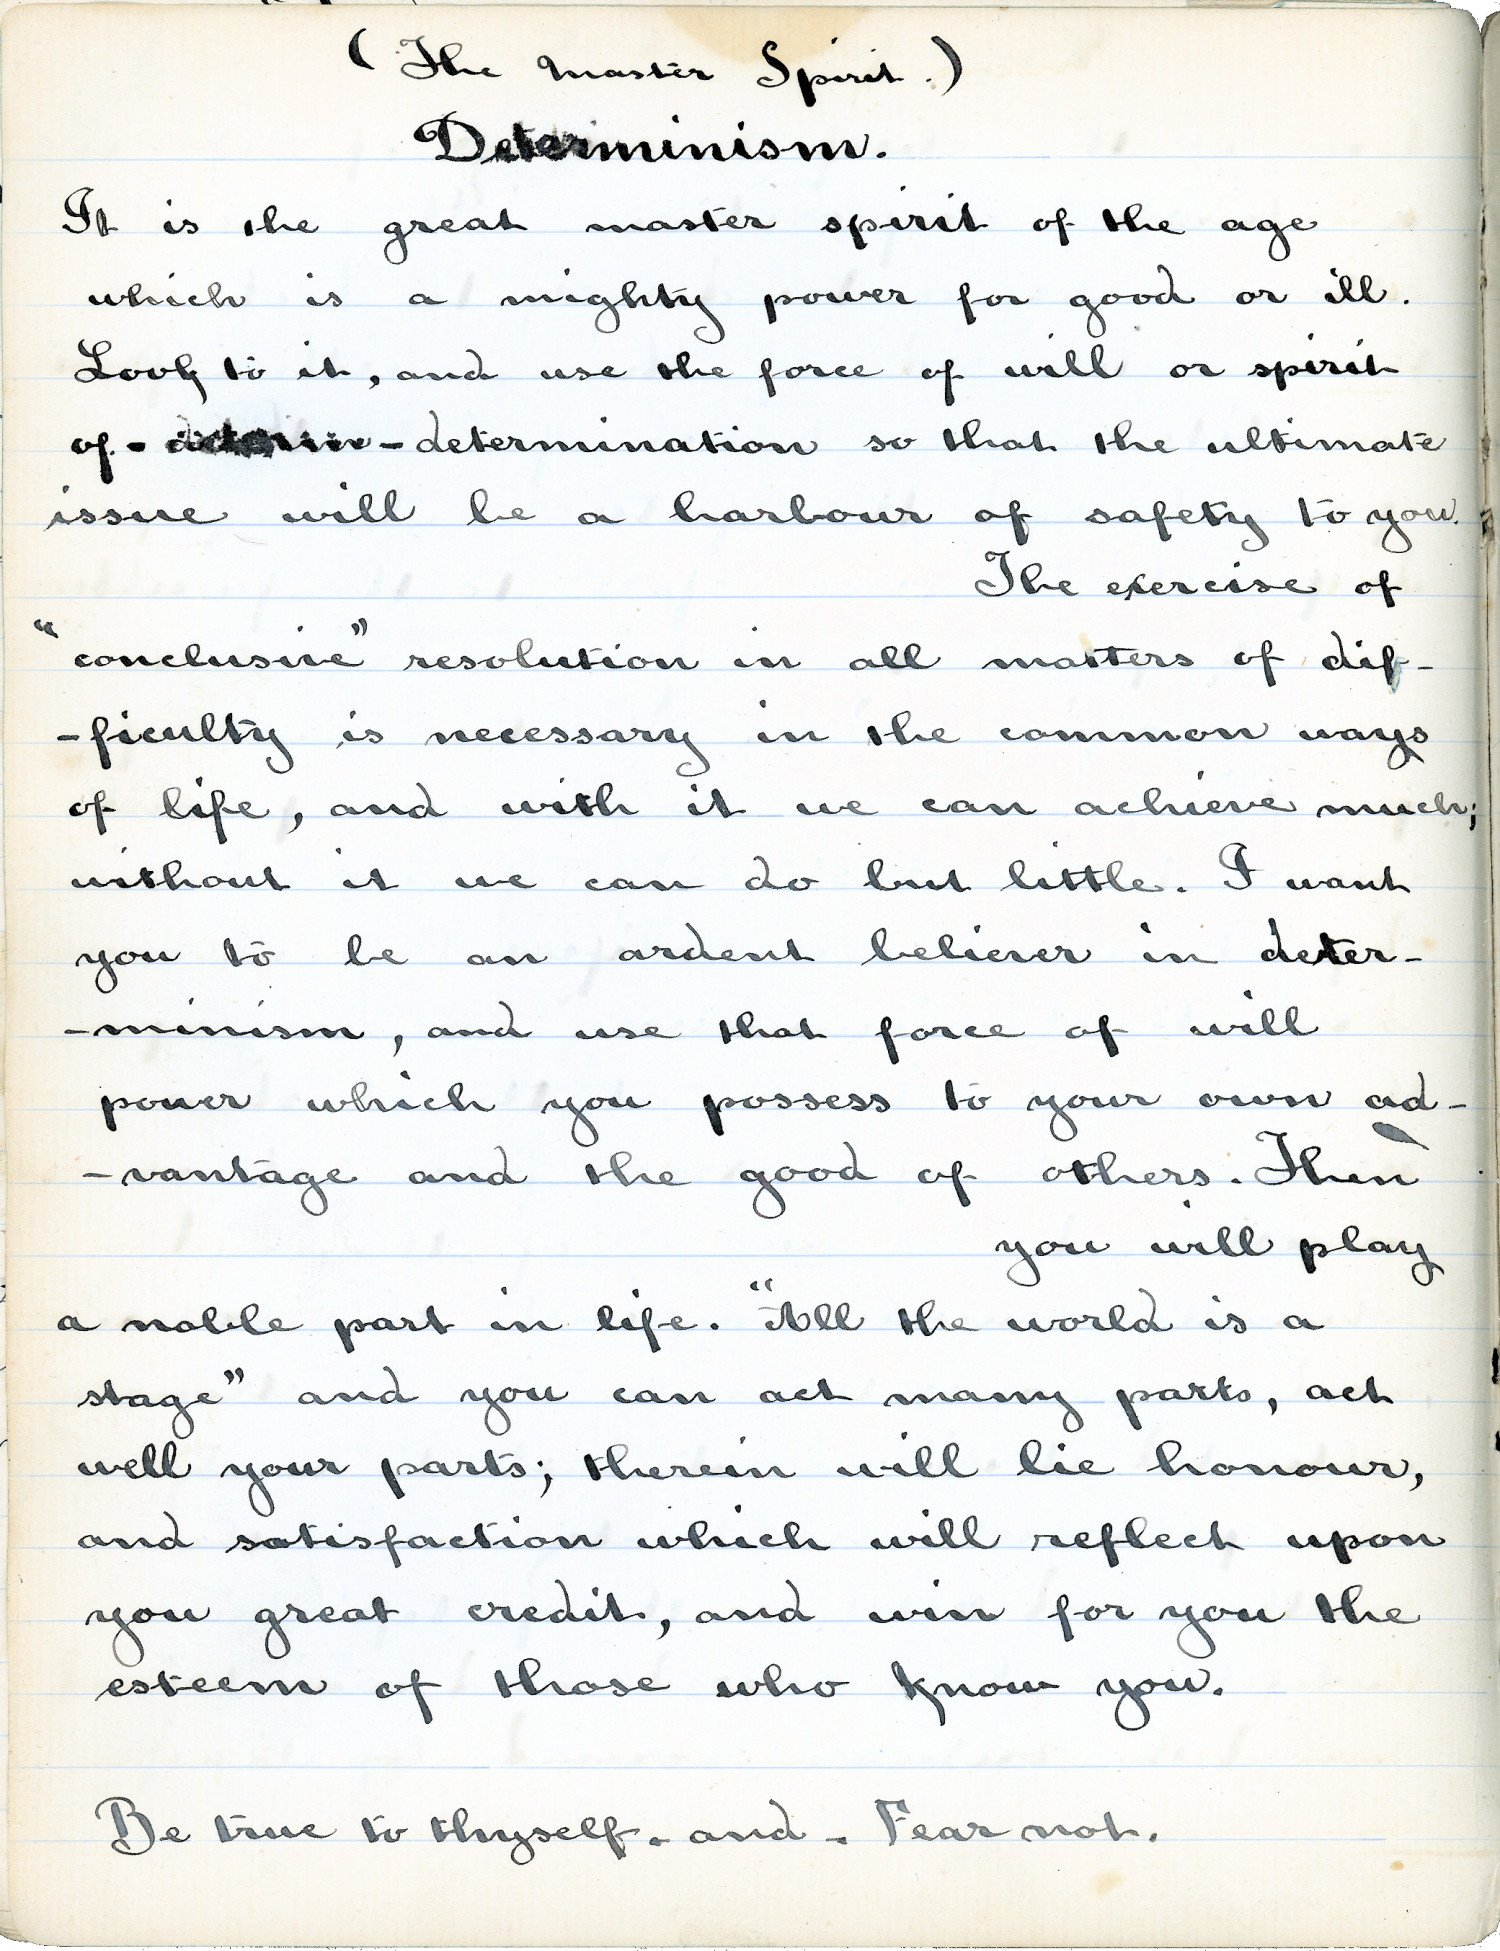 (The Master Spirit.)
Determinism.
It is the great master spirit of the age
which is a mighty power for good or ill.
Look to it, and use the force of will or spirit
of - determin - determination so that the ultimate
issue will be a harbour of safety to you.
The exercise of
"conclusive" resolution in all matters of dif-
-ficulty is necessary in the common ways
of life, and with it we can achieve much;
without it we can do but little. I want
you to be an ardent believer in deter-
-minism, and use that force of will
power which you possess to your own ad-
-vantage and the good of others. Then
you will play
a noble part in life. "All the world is a
stage" and you can act many parts, act
well your parts; therein will lie honour,
and satisfaction which will reflect upon
you great credit, and win for you the
esteem of those who know you.
Be true to thyself. and. Fear not.